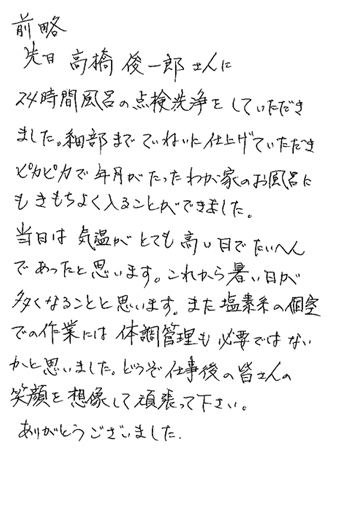 前略
先日 高橋 俊一郎さんに
24時間風呂の点検洗浄をしていただき
ました。細部までていねいに仕上げていただき
ピカピカで年月がたったわが家のお風呂に
もきもちよく入ることができました。
当日は気温がとても高い日でたいへん
であったと思います。これから暑い日が
多くなることと思います。また塩素系の個室
での作業には体調管理も必要ではない
かと思いました。どうぞ仕事後の皆さんの
笑顔を想像して頑張って下さい。
ありがとうございました.